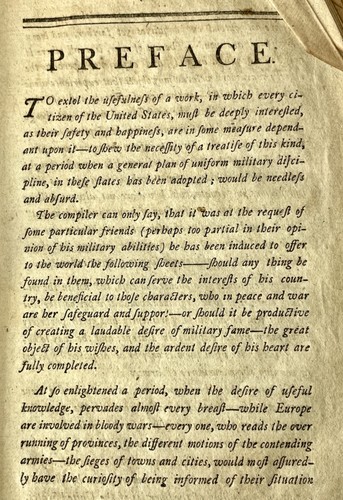 PREFACE.
TO extol the uſefulneſs of a work, in which every ci-
tizen of the United States, muſt be deeply intereſted,
as their ſafety and happineſs, are in ſome meaſure depend-
ant upon it—to ſhew the neceſſity of a treatiſe of this kind,
at a period when a general plan of uniform military diſci-
pline, in theſe ſtates has been adopted; would be needleſs
and abſurd.
The compiler can only ſay, that it was at the requeſt of
ſome particular friends (perhaps too partial in their opi-
nion of his military abilities) he has been induced to offer
to the world the following ſheets——ſhould any thing be
found in them, which can ſerve the intereſts of his coun-
try, be beneficial to thoſe characters, who in peace and war
are her ſafeguard and ſupport—or ſhould it be productive
of creating a laudable deſire of military fame—the great
object of his wiſhes, and the ardent deſire of his heart are
fully completed.
At ſo enlightened a period, when the deſire of uſeful
knowledge, pervades almoſt every breaſt—while Europe
are involved in bloody wars—every one, who reads the over
running of provinces, the different motions of the contending
armies—the ſieges of towns and cities, would moſt aſſured-
ly have the curioſity of being informed of their ſituation